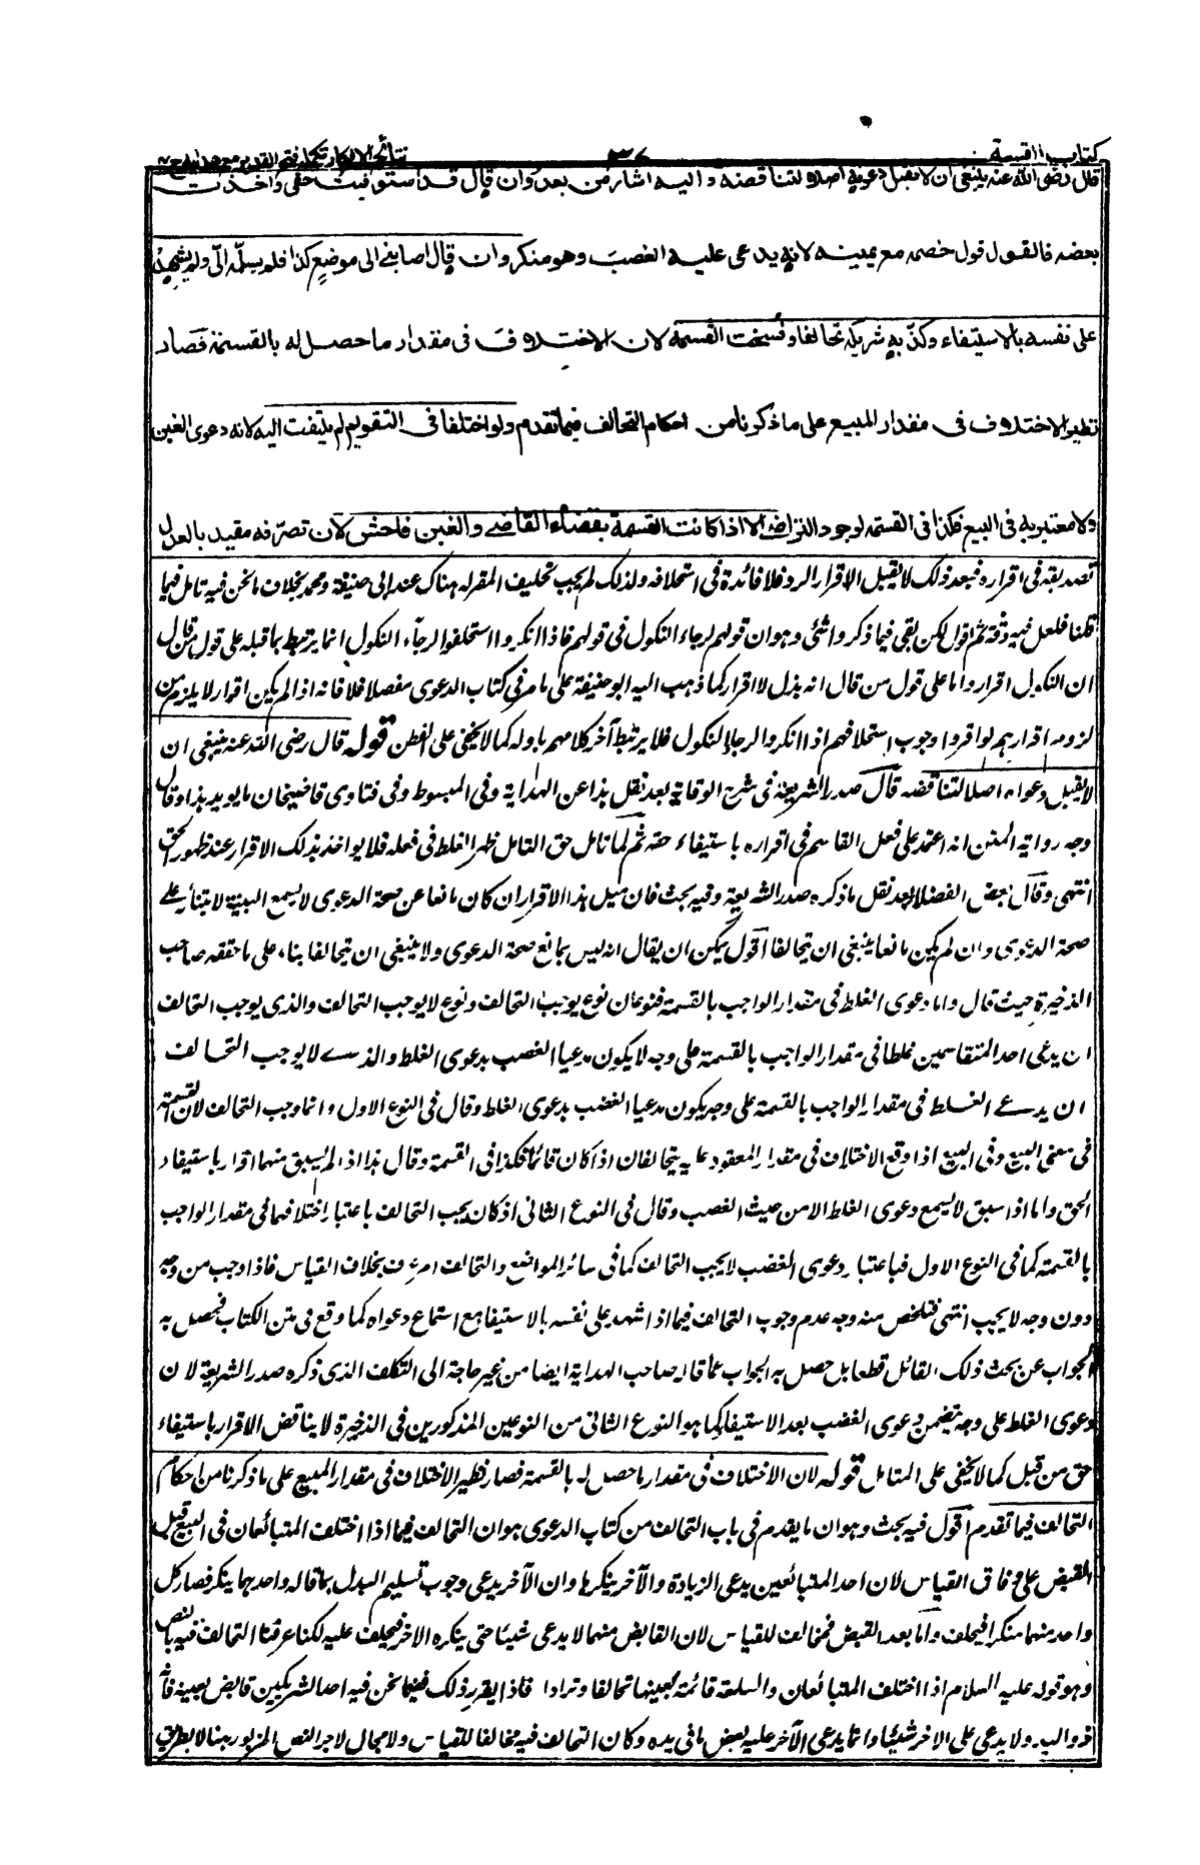 كتاب القسمة
٣٦٧
نتائج الافكار تكملة فتح القدير مع هدايه ج
قال رضى الله عنه ينبغى ان لا تقبل دعواه اصلا لتناقضه واليه اشار من بعد وان قال قد استوفيت حقى واخذت
بعضه فالقول قول خصمه مع يمينه لانه يدعى عليه الغصب وهو منكر وان قال اصابنى الى موضع كذا فلم يسلمه الىّ ولم يشهد
على نفسه بالاستيفاء وكذّبه شريكه تحالفا وفسخت القسمة لان الاختلاف فى مقدار ما حصل له بالقسمة فصار
نظير الاختلاف فى مقدار المبيع على ما ذكرنا من احكام التحالف فيما تقدم ولو اختلفا فى التقويم لم يلتفت اليه لانه دعوى الغبن
ولا معتبر به فى البيع فكذا فى القسمة لوجود التراضى الا اذا كانت القسمة بقضاء القاضى والغبن فاحش لان تصرفه مقيد بالعدل
تصديقه فى اقراره فبعد ذلك لا يقبل الاقرار الرد فلا فائدة فى استحلافه ولذلك لم يجب تحليف المقر له هناك عند ابى حنيفة ومحمد بخلاف ما نحن فيه تامل فيما
قلنا فلعل فيه دقة ثم اقول لكن بقى فيما ذكروا شئ وهو ان قولهم لرجاء النكول فى قولهم فاذا انكروا استحلفوا لرجاء النكول انما يرتبط بما قبله على قول من قال
ان النكول اقرار واما على قول من قال انه بذل لا اقرار كما ذهب اليه ابو حنيفة على ما مر فى كتاب الدعوى مفصلا فلا فانه اذا لم يكن اقرار لا يلزم من
لزومه اقرارهم لو اقروا وجوب استحلافهم اذا انكروا لرجاء النكول فلا يرتبط آخر كلامهم باوله كما لا يخفى على الفطن قوله قال رضى الله عنه ينبغى ان
لا يقبل دعواه اصلا لتناقضه قال صدر الشريعة فى شرح الوقاية بعد نقل هذا عن الهداية وفى المبسوط وفى فتاوى قاضيخان ما يؤيد هذا وقال
وجه رواية المتن انه اعتمد على فعل القاسم فى اقراره باستيفاء حقه ثم لما تامل حق التامل ظهر الغلط فى فعله فلا يواخذ بذلك الاقرار عند ظهور الحق
انتهى وقال بعض الفضلاء بعد نقل ما ذكره صدر الشريعة وفيه بحث فان مثل هذا الاقرار ان كان مانعا عن صحة الدعوى لا يسمع البينة لابتنائه على
صحة الدعوى وان لم يكن مانعا ينبغى ان تحالفا اقول يمكن ان يقال انه ليس بمانع صحة الدعوى ولا ينبغى ان تحالفا بناء على ما حققه صاحب
الذخيرة حيث قال واما دعوى الغلط فى مقدار الواجب بالقسمة فنوعان نوع يوجب التحالف ونوع لا يوجب التحالف والذى يوجب التحالف
ان يدعى احد المتقاسمين غلطا فى مقدار الواجب بالقسمة على وجه لا يكون مدعيا الغصب بدعوى الغلط والذى لا يوجب التحالف
ان يدعى الغلط فى مقدار الواجب بالقسمة على وجه يكون مدعيا الغصب بدعوى الغلط وقال فى النوع الاول وانما وجب التحالف لان القسمة
فى معنى البيع وفى البيع اذا وقع الاختلاف فى مقدار المعقود عليه يتحالفان اذا كان قائما فكذا فى القسمة وقال هذا اذا لم يسبق منهما اقرار باستيفاء
الحق واما اذا سبق لا يسمع دعوى الغلط الا من حيث الغصب وقال فى النوع الثانى اذ كان يجب التحالف باعتبار اختلافهما فى مقدار الواجب
بالقسمة كما فى النوع الاول فباعتبار دعوى الغصب لا يجب التحالف كما فى سائر المواضع والتحالف امر عرف بخلاف القياس فاذا وجب من وجه
دون وجه لا يجب انتهى فتلخص منه وجه عدم وجوب التحالف فيما اذا اشهد على نفسه بالاستيفاء مع استماع دعواه كما وقع فى متن الكتاب فحصل به
الجواب عن بحث ذلك القائل قطعا بل حصل به الجواب عما قاله صاحب الهداية ايضا من غير حاجة الى التكلف الذى ذكره صدر الشريعة لان
دعوى الغلط على وجه تضمن دعوى الغصب بعد الاستيفاء كما هو النوع الثانى من النوعين المذكورين فى الذخيرة لا يناقض الاقرار باستيفاء
حق من قبل كما لا يخفى على المتامل قوله لان الاختلاف فى مقدار ما حصل له بالقسمة فصار نظير الاختلاف فى مقدار المبيع على ما ذكرنا من احكام
التحالف فيما تقدم اقول فيه بحث وهو ان ما يقدم فى باب التحالف من كتاب الدعوى هو ان التحالف فيما اذا اختلف المتبائعان فى البيع قبل
القبض على وفاق القياس لان احد المتبائعين يدعى الزيادة والآخر ينكرها وان الآخر يدعى وجوب تسليم المبدل بما قاله واحدهما ينكر فصار كل
واحد منهما منكرا فيحلف واما بعد القبض فمخالف للقياس لان القابض منهما لا يدعى شيئا حتى ينكره الاخر فيحلف عليه لكنا عرفنا التحالف فيه بالنص
وهو قوله عليه السلام اذا اختلف المتبائعان والسلعة قائمة بعينها تحالفا وترادا فاذا تقرر ذلك ففيما نحن فيه احد الشريكين قابض بعينه فانه
ذو اليد ولا يدعى على الاخر شيئا وانما يدعى الآخر عليه بعض ما فى يده وكان التحالف فيه مخالفا للقياس ولا مجال لاجراء النص المزبور هنا لا بطريق